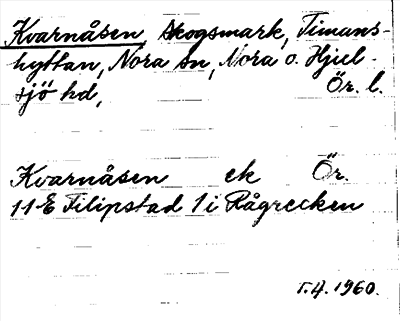 Kvarnåsen, skogsmark, Timans-
hyttan, Nora sn, Nora o. Hjul-
sjö hd, Ör. l.
Kvarnåsen ek Ör.
11 E Filipstad 1 i Rågrecken
r.4. 1960.